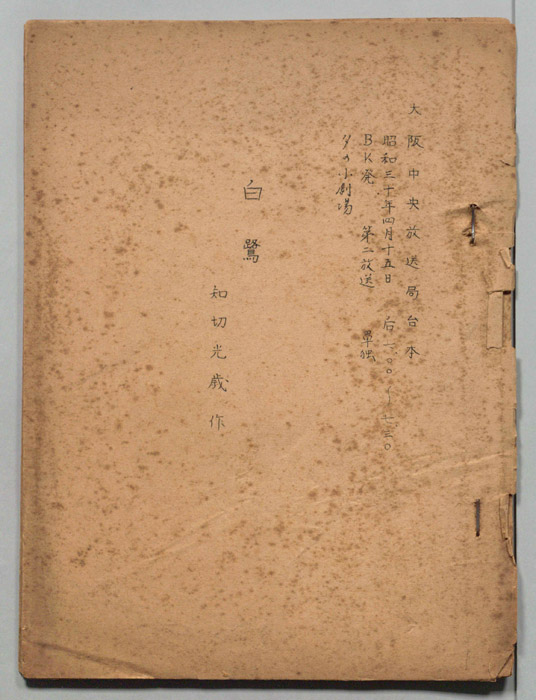 大阪中央放送局台本
昭和三十年四月十五日 后
BK発 第二放送 單独
夕の小劇場
白鷺
知切光歳 作